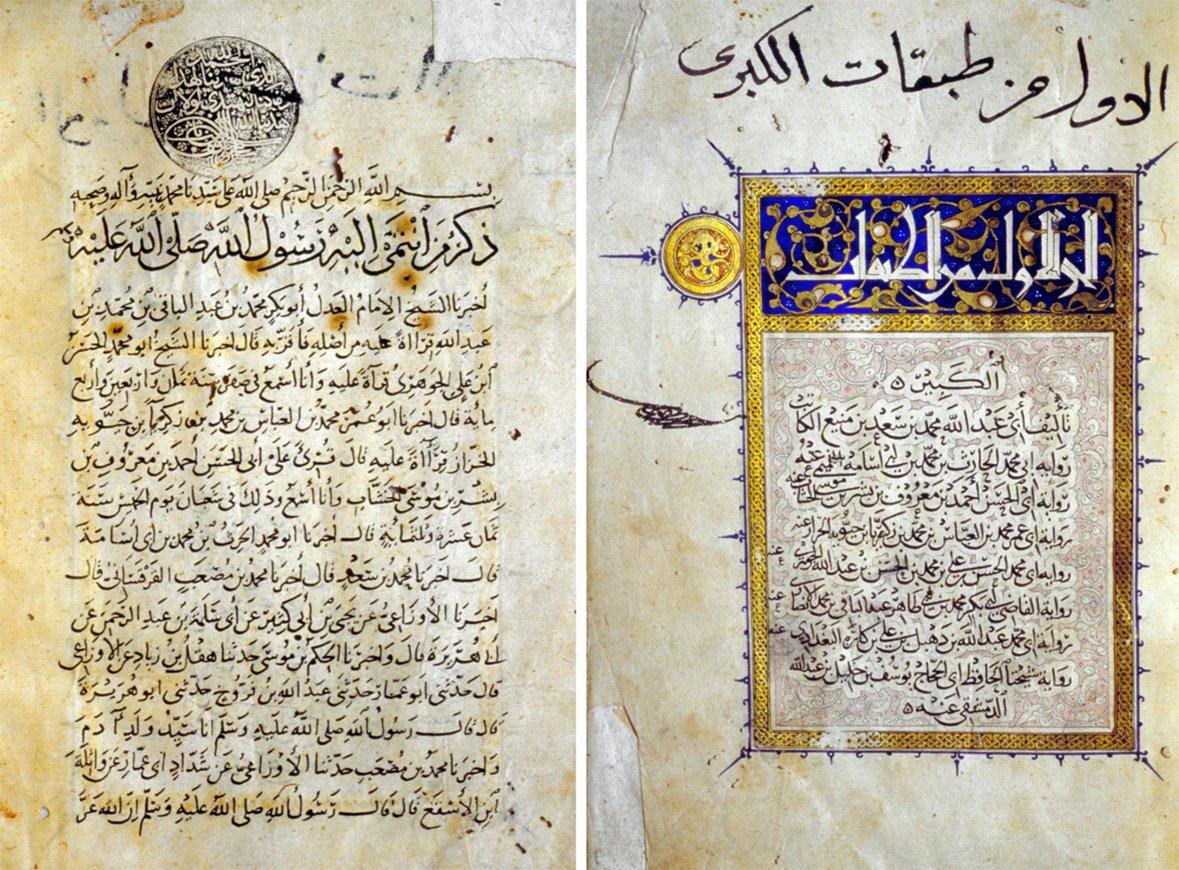 الاول من طبقات الكبرى
الجزء الاول من الطبقات
الكبير ه
تأليف أبي عبد الله محمد بن سعد بن منيع الكاتب
رواية ابي محمد الحارث بن محمد بن ابي اسامة التميمي عنه
رواية ابي الحسن أحمد بن معروف بن بشر بن موسى الخشاب عنه
رواية ابي عمر محمد بن العباس بن محمد بن زكريا بن حيويه الخزاز عنه
رواية ابي محمد الحسن بن علي بن محمد بن الحسن بن عبد الله الجوهري عنه
رواية القاضي ابي بكر محمد بن ابي طاهر عبد الباقي بن محمد الانصاري عنه
رواية ابي محمد عبد الله بن دهبل بن علي بن كاره البغدادي عنه
رواية شيخنا الحافظ ابي الحجاج يوسف بن خليل بن عبد الله
الدمشقي عنه ه
بسم الله الرحمن الرحيم صلى الله على سيدنا محمد نبيه وآله وصحبه
ذكر من انتمى اليه رسول الله صلى الله عليه وسلم
أخبرنا الشيخ الإمام العدل أبو بكر محمد بن عبد الباقي بن محمد بن
عبد الله قراءة عليه من أصله فأقر به قال اخبرنا الشيخ ابو محمد الحسن
ابن علي الجوهري قراءة عليه وأنا أسمع في صفر سنة ثمان واربعين واربع
مائة قال اخبرنا ابو عمر محمد بن العباس بن محمد بن زكريا بن حيويه
الخزاز قراءة عليه قال قرئ على أبي الحسن أحمد بن معروف بن
بشر بن موسى الخشاب وأنا أسمع وذلك في شعبان يوم الخميس سنة
ثمان عشرة وثلثمائة قال أخبرنا ابو محمد الحرث بن محمد بن ابي أسامة
قال اخبرنا محمد بن سعد قال أخبرنا محمد بن مصعب القرقساني قال
اخبرنا الأوزاعي عن يحيى بن أبي كثير عن أبي سلمة بن عبد الرحمن عن
أبي هريرة قال واخبرنا الحكم بن موسى حدثنا هقل بن زياد عن الأوزاعي
قال حدثني ابو عمار حدثني عبد الله بن فروخ حدثني ابو هريرة
قال قال رسول الله صلى الله عليه وسلم أنا سيد ولد آدم
واخبرنا محمد بن مصعب حدثنا الأوزاعي عن شداد ابي عمار عن واثلة
ابن الأسقع قال قال رسول الله صلى الله عليه وسلم إن الله عز